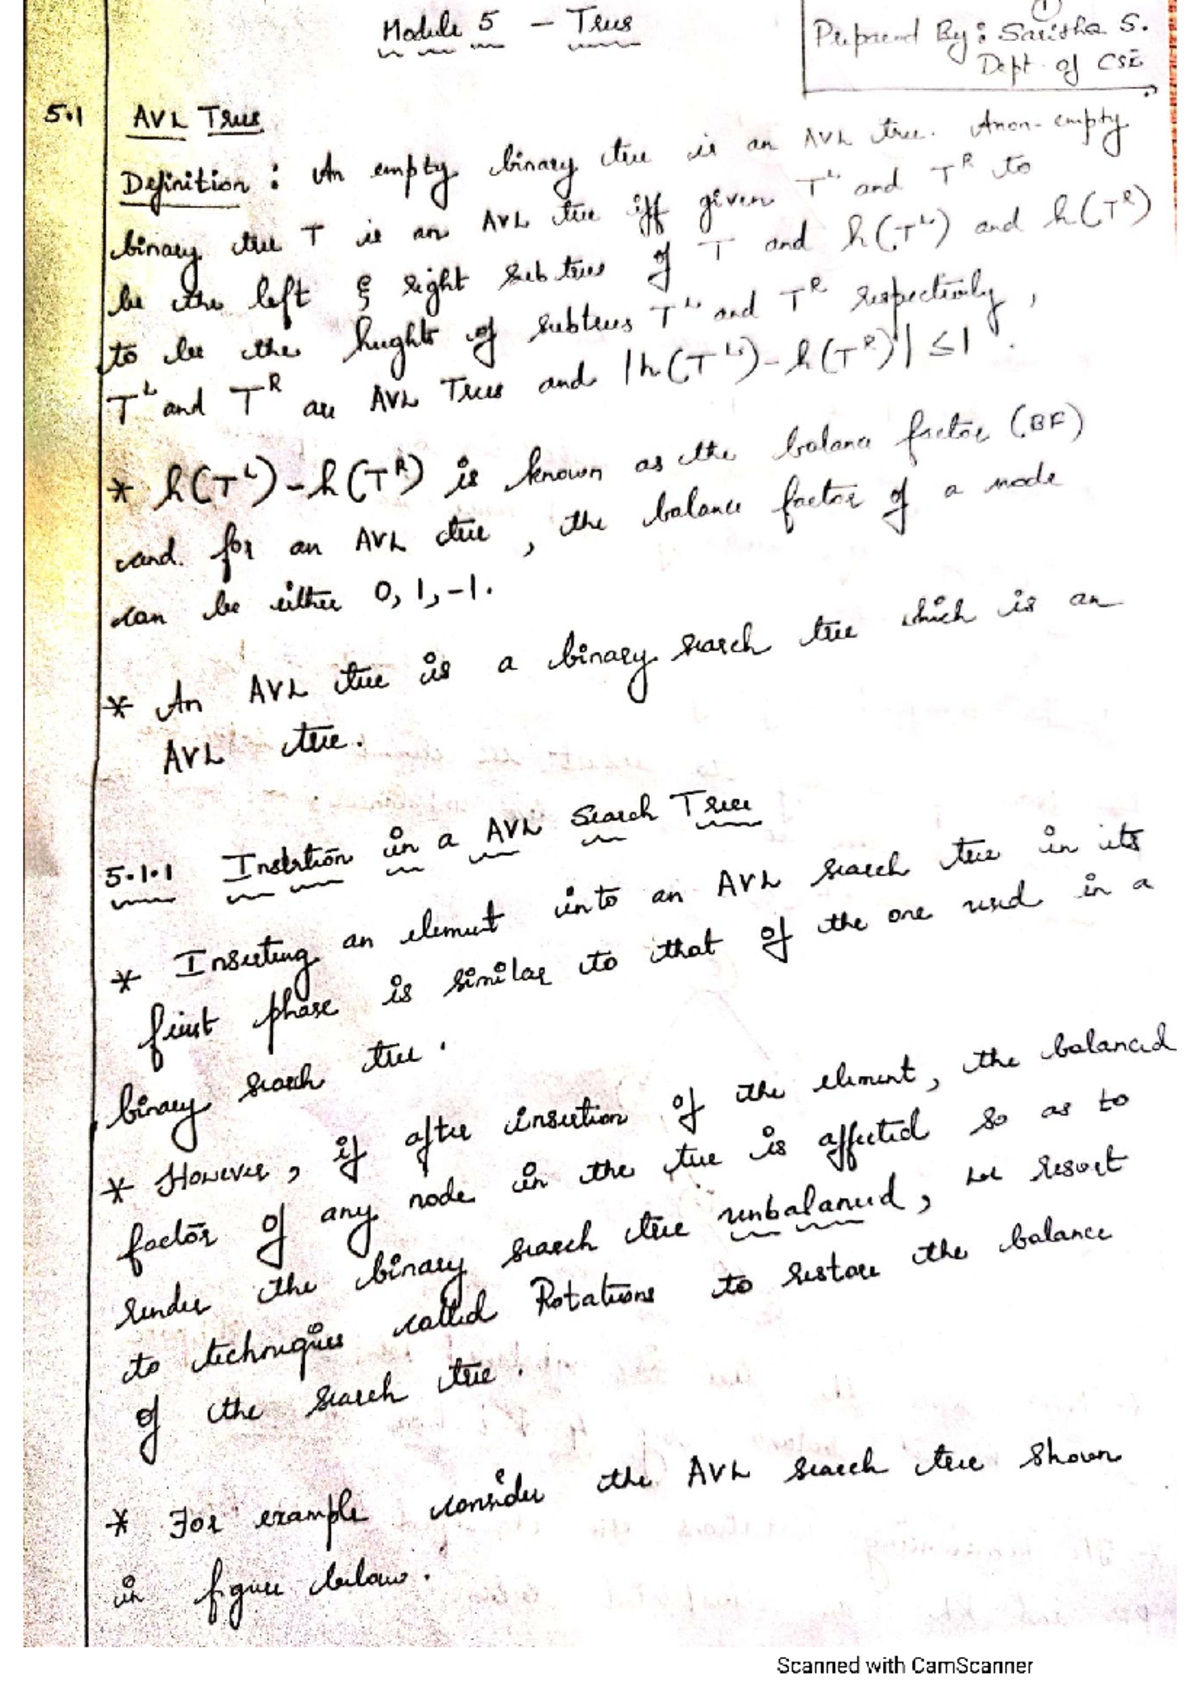 Module 5 – Trees
1
Prepared By: Saritha S.
Dept. of CSE
5.1 AVL Trees
Definition : An empty binary tree is an AVL tree. A non-empty
binary tree T is an AVL tree iff given T^L and T^R to
be the left & right subtrees of T and h(T^L) and h(T^R)
to be the heights of subtrees T^L and T^R respectively,
T^L and T^R are AVL Trees and |h(T^L) – h(T^R)| ≤ 1.
* h(T^L) – h(T^R) is known as the balance factor (BF)
and for an AVL tree, the balance factor of a node
can be either 0, 1, -1.
* An AVL tree is a binary search tree which is an
AVL tree.
5.1.1 Insertion in a AVL Search Tree
* Inserting an element into an AVL search tree in its
first phase is similar to that of the one used in a
binary search tree.
* However, if after insertion of the element, the balanced
factor of any node in the tree is affected so as to
render the binary search tree unbalanced, we resort
to techniques called Rotations to restore the balance
of the search tree.
* For example consider the AVL search tree shown
in figure below.
Scanned with CamScanner